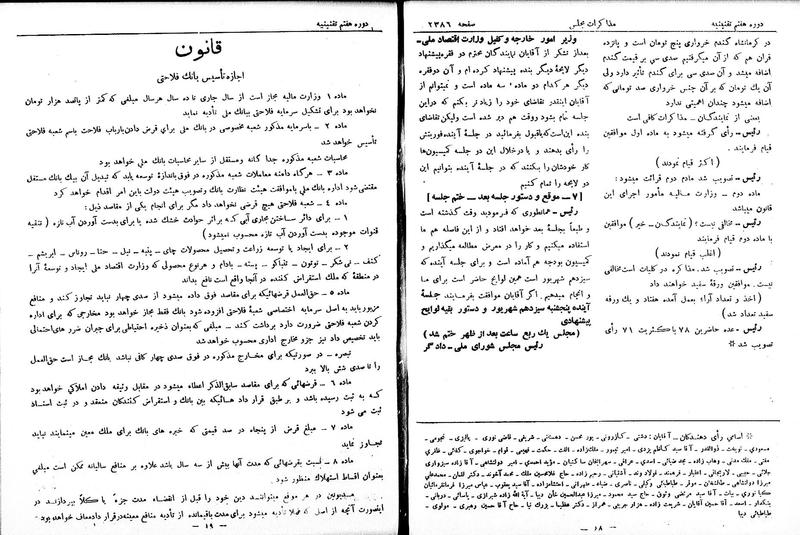 دوره هفتم تقنینیه
مذاکرات مجلس
صفحه ۲۳۸۶
در کرمانشاه گندم خرواری پنج تومان است و پانزده
قران هم که از آن میگرفتیم سدی سی بر قیمت گندم
اضافه میشد و آن سدی سی برای گندم تأثیر دارد ولی
آن یک تومان که بر آن جنس خرواری صد تومانی که
اضافه میشود چندان اهمیتی ندارد
بعضی از نمایندگان ـ مذاکرات کافی است
رئیس ـ رأی گرفته میشود به ماده اول موافقین
قیام فرمایند .
( اکثر قیام نمودند )
رئیس ـ تصویب شد ماده دوم قرائت میشود :
ماده دوم ـ وزارت مالیه مأمور اجرای این
قانون میباشد
رئیس ـ مخالفی نیست ؟ ( نمایندگان ـ خیر ) موافقین
با ماده دوم قیام فرمایند
( اغلب قیام نمودند )
رئیس ـ تصویب شد . مذاکره در کلیات است مخالفی
نیست . موافقین ورقهٔ سفید خواهند داد
( اخذ و تعداد آراء بعمل آمده هفتاد و یک ورقه
سفید تعداد شد )
رئیس ـ عده حاضرین ۷۸ باکثریت ۷۱ رأی
تصویب شد *
وزیر امور خارجه و کفیل وزارت اقتصاد ملی ـ
بعد از تشکر از آقایان نمایندگان محترم دو فقره پیشنهاد
دیگر لایحهٔ دیگر بنده پیشنهاد کرده ام و آن دو فقره
دیگر هر کدام دو ماده ، سه ماده است و نمیتوانم از
آقایان اینقدر تقاضای خود را زیادتر بکنم که در این
جلسه تمام بشود و وقت هم دیر شده است ولیکن تقاضای
بنده این است که با قبول بفرمائید در جلسهٔ آینده فوریتش
را رأی بدهند و یا در خلال این دو جلسه کمیسیون‌ها
کار خودشان را بکنند که در جلسهٔ آینده بتوانیم این
دو لایحه را تمام کنیم
[ ۷ ـ موقع و دستور جلسه بعد ـ ختم جلسه ]
رئیس ـ همانطوری که فرمودید وقت گذشته است
و طبعاً بجلسهٔ بعد خواهد افتاد و از این فاصله هم ما
استفاده میکنیم و کار را در معرض مطالعه میگذاریم و
کمیسیون بودجه هم آماده است و برای جلسه آینده که
سیزدهم شهریور است همین لوایح حاضر است برای ما
و انجام میدهیم . اگر آقایان موافقت بفرمایند جلسهٔ
آینده پنجشنبه سیزدهم شهریور و دستور بقیه لوایح
پیشنهادی
( مجلس یک ربع ساعت بعد از ظهر ختم شد )
رئیس مجلس شورای ملی ـ دادگر
* اسامی رأی دهندگان ـ آقایان : دشتی ـ کازرونی ـ پور محسن ـ دهستانی ـ شریفی ـ قاضی نوری ـ پالیزی ـ نجومی ـ
ـ ۶۸ ـ
دوره هفتم تقنینیه
قانون
اجازه تأسیس بانک فلاحتی
ماده ۱ ـ وزارت مالیه مجاز است از سال جاری تا ده سال هر سال مبلغی که کمتر از پانصد هزار تومان
نخواهد بود برای تشکیل سرمایه فلاحتی ببانک ملی تأدیه نماید
ماده ۲ ـ با سرمایه مذکور شعبه مخصوصی در بانک ملی برای قرض دادن بارباب فلاحت باسم شعبه فلاحتی
تأسیس خواهد شد
محاسبات شعبه مذکوره جدا گانه و مستقل از سایر محاسبات بانک ملی خواهد بود
ماده ۳ ـ هرگاه دامنه معاملات شعبه مذکوره در فوق باندازهٔ توسعه یابد که تبدیل آن بیک بانک مستقل
مقتضی شود اداره بانک ملی با موافقت هیئت نظارت بانک و تصویب هیئت دولت باین امر اقدام خواهد کرد
ماده ۴ ـ شعبه فلاحتی هیچ قرضی نخواهد داد مگر برای انجام یکی از مقاصد ذیل :
۱ ـ برای دائر ساختن مجاری آبی که بر اثر حوادث خشک شده یا برای بدست آوردن آب تازه ( تنقیه
قنوات موجوده بدست آوردن آب تازه محسوب نمیشود )
۲ ـ برای ایجاد یا توسعه زراعت و تحصیل محصولات چای ـ پنبه ـ نیل ـ حنا ـ روناس ـ ابریشم ـ
کنف ـ نی شکر ـ توتون ـ تنباکو ـ پسته ـ بادام و هر نوع محصولی که وزارت اقتصاد ملی ایجاد و توسعهٔ آنرا
در منطقهٔ که ملک استقراض کننده در آنجا واقع است نافع بداند
ماده ۵ ـ حق‌العمل قرضهائیکه برای مقاصد فوق داده میشود از صدی چهار نباید تجاوز کند و منافع
مزبور باید به اصل سرمایه اختصاصی شعبهٔ فلاحتی افزوده شود بانک فقط مجاز خواهد بود مخارجی که برای اداره
کردن شعبه فلاحتی ضرورت دارد برداشت کند . مبلغی که بعنوان ذخیره احتیاطی برای جبران ضررهای احتمالی
باید تخصیص داد نیز جزو مخارج اداری محسوب خواهد شد
تبصره ـ در صورتیکه برای مخارج مذکوره در فوق صدی چهار کافی نباشد بانک مجاز است حق‌العمل
را تا صدی شش بالا ببرد
ماده ۶ ـ قرضهائی که برای مقاصد سابق‌الذکر اعطاء میشود در مقابل وثیقه دادن املاکی خواهد بود
که به ثبت رسیده باشد و بر طبق قرار داد هائیکه بین بانک و استقراض کنندگان منعقد و در ثبت اسناد
ثبت می شود
ماده ۷ ـ مبلغ قرض از پنجاه در صد قیمتی که خبره های بانک برای ملک معین مینمایند نباید
تجاوز نماید
ماده ۸ ـ نسبت بقرضهائی که مدت آنها بیش از سه سال باشد علاوه بر منافع سالیانه ممکن است مبلغی
بعنوان اقساط استهلاک منظور شود
مدیونین در هر موقع میتوانند دین خود را قبل از انقضاء مدت جزءً یا کلاً بپردازند در
اینصورت آنچه از اصل که قبلاً تأدیه میشود برای مدت باقیمانده از تأدیه منافع معینه در قرارداد معاف خواهد بود
ـ ۶۹ ـ